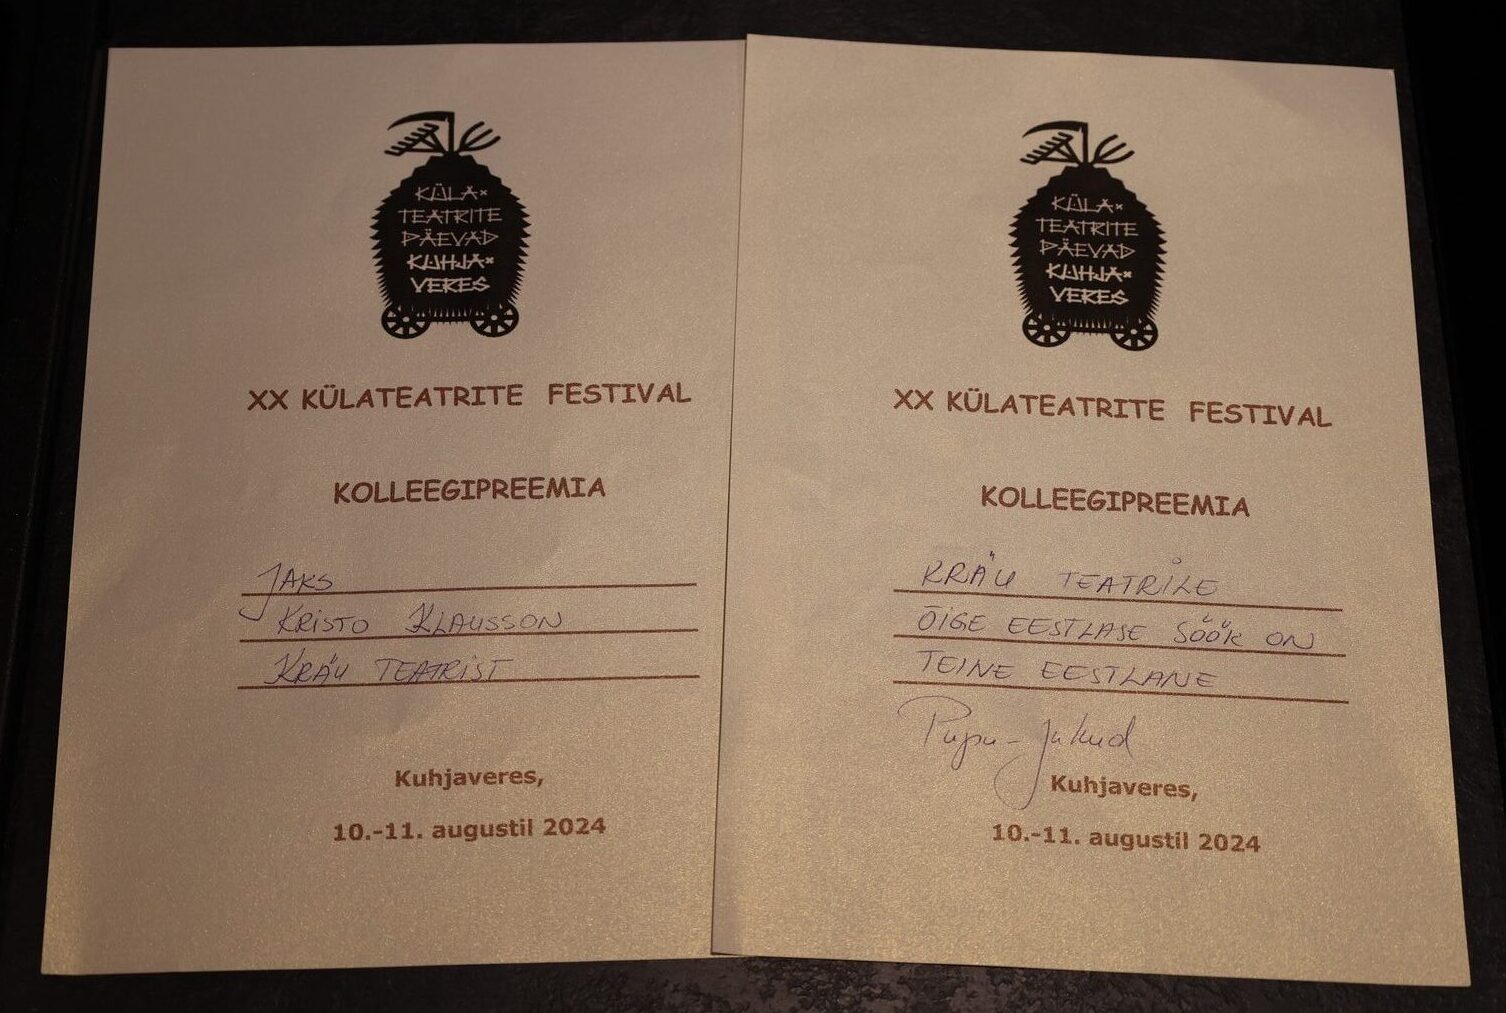 KÜLA-
TEATRITE
PÄEVAD
KUHJA-
VERES
XX KÜLATEATRITE FESTIVAL
KOLLEEGIPREEMIA
JAKS
KRISTO KLAUSSON
KRÄU TEATRIST
Kuhjaveres,
10.-11. augustil 2024
KÜLA-
TEATRITE
PÄEVAD
KUHJA-
VERES
XX KÜLATEATRITE FESTIVAL
KOLLEEGIPREEMIA
KRÄU TEATRILE
ÕIGE EESTLASE SÖÖK ON
TEINE EESTLANE
Pupu-Jukud
Kuhjaveres,
10.-11. augustil 2024